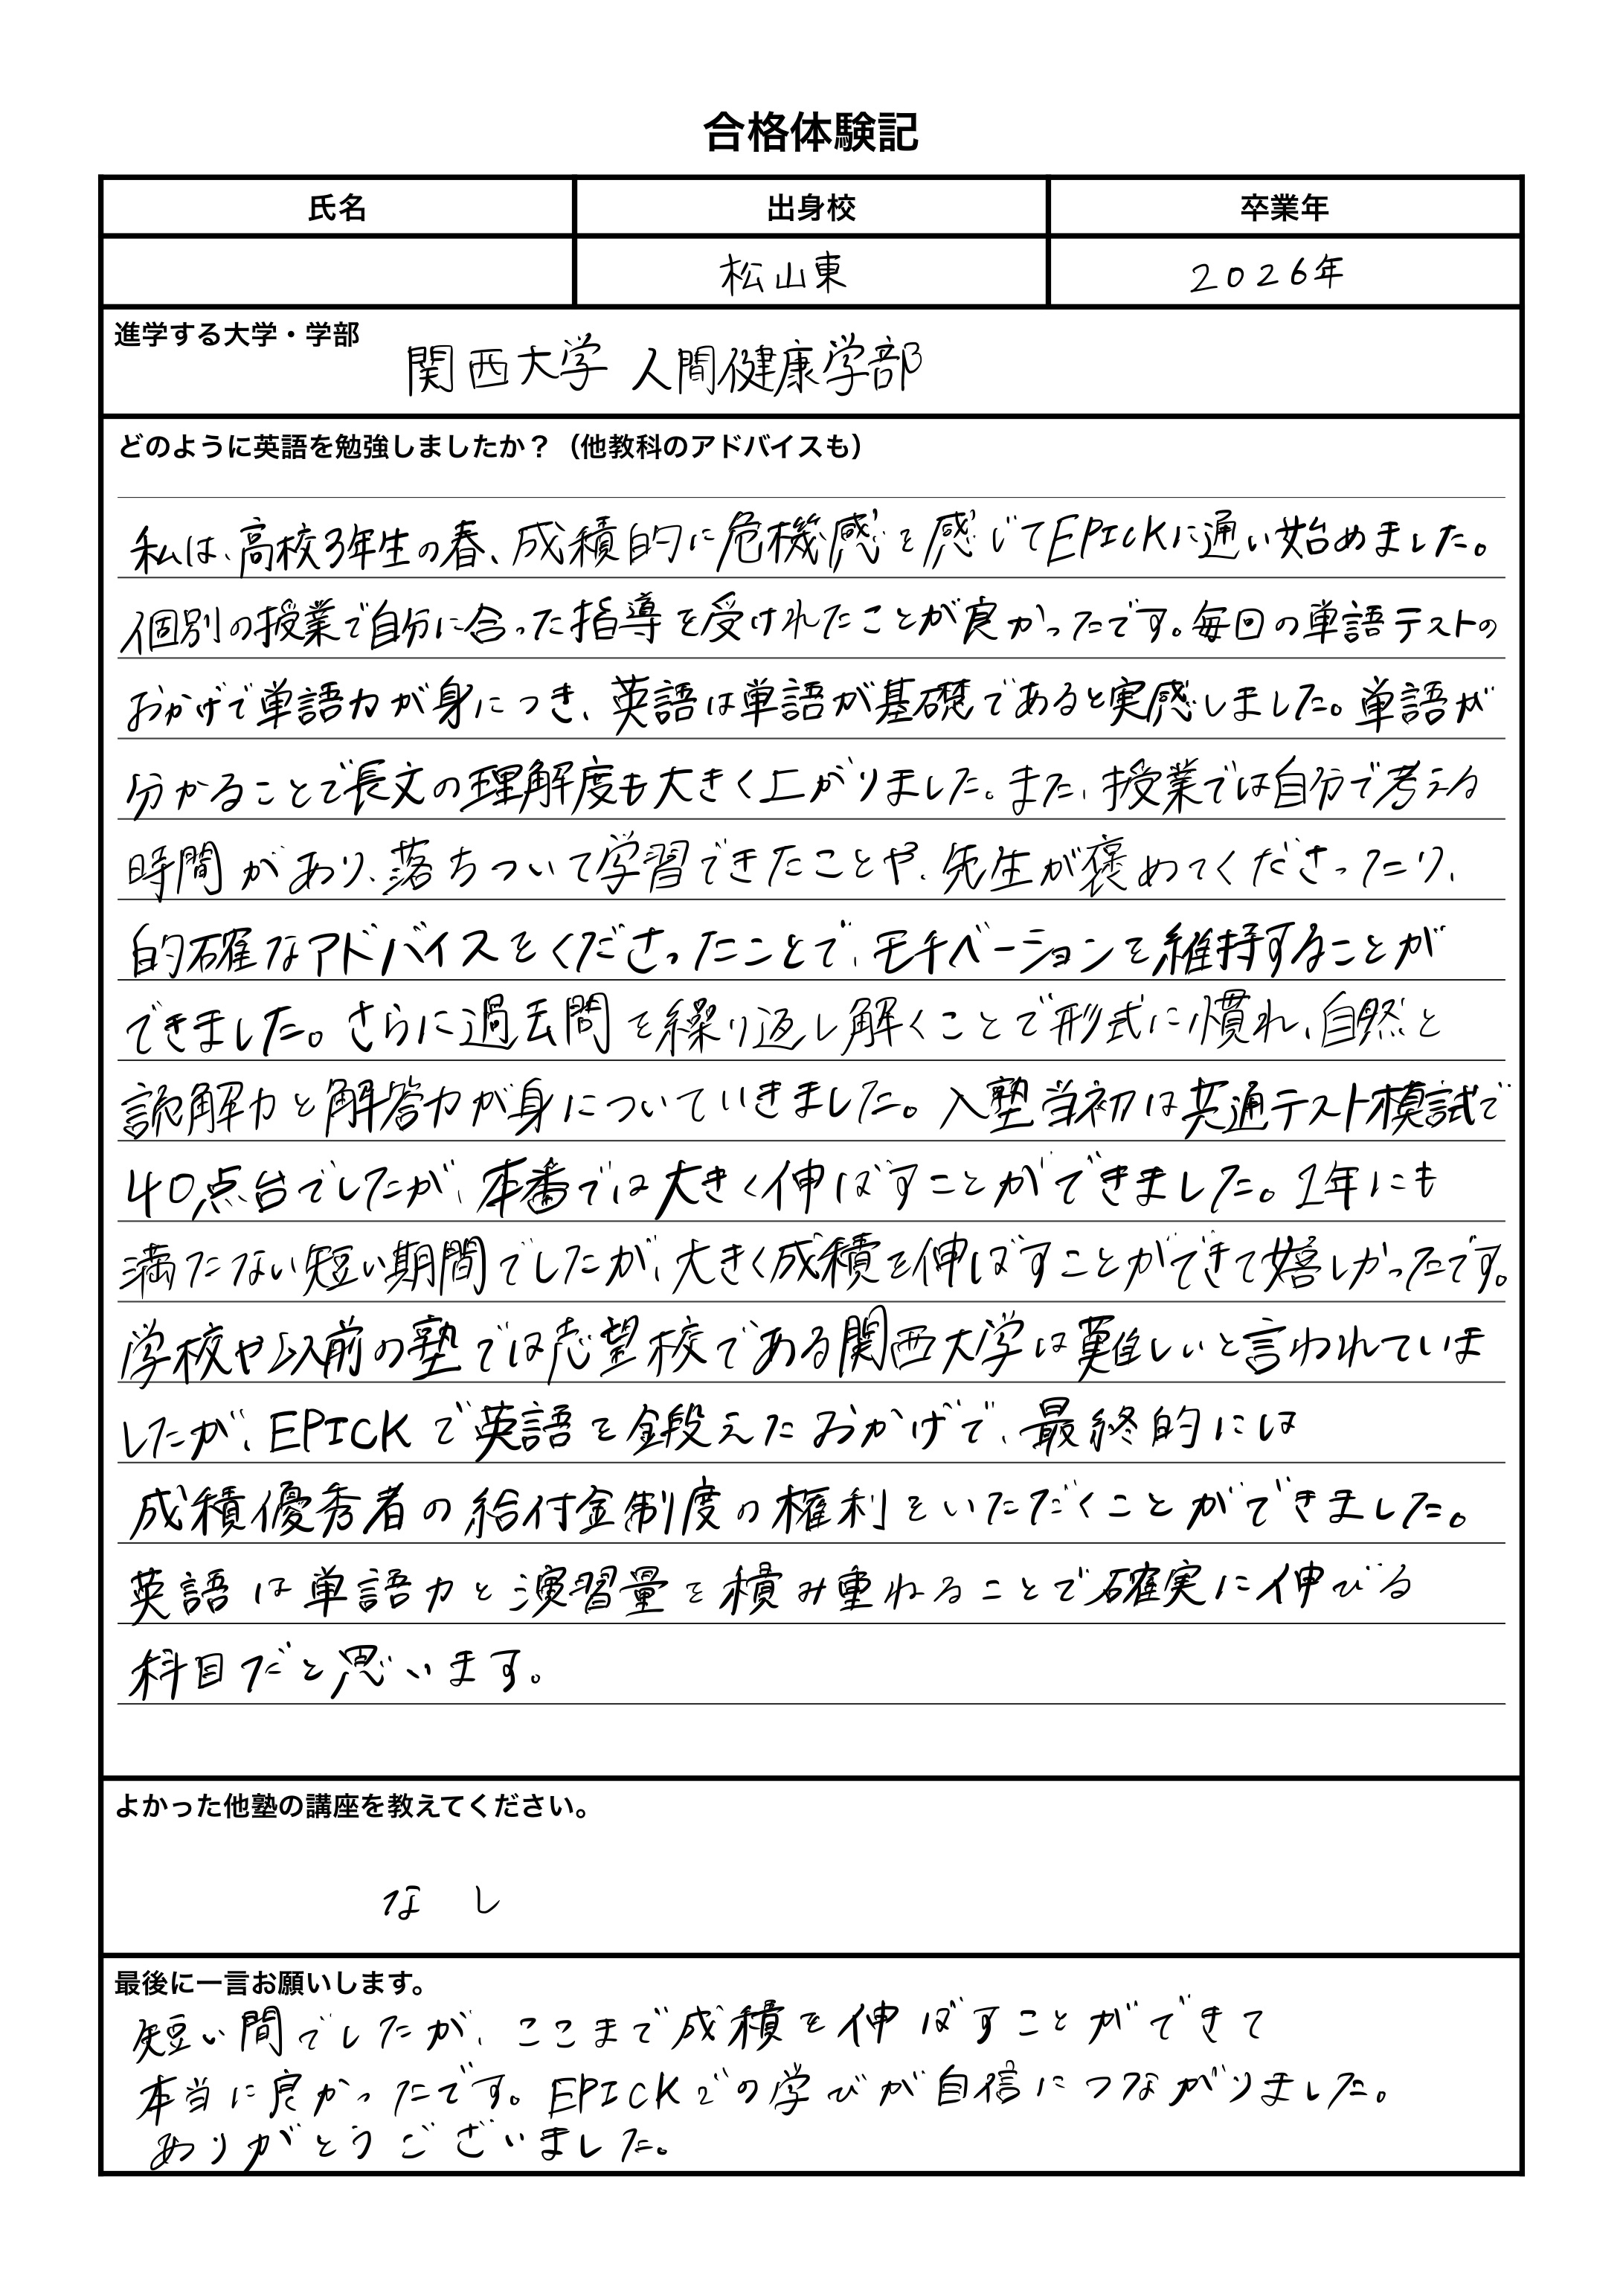 合格体験記
氏名 出身校 卒業年
松山東 2026年
進学する大学・学部
関西大学 人間健康学部
どのように英語を勉強しましたか？（他教科のアドバイスも）
私は、高校3年生の春、成積的に危機感を感じてEPICKに通い始めました。
個別の授業で自分に合った指導を受けれたことが良かったです。毎回の単語テストの
おかげで単語力が身につき、英語は単語が基礎であると実感しました。単語が
分かることで長文の理解度も大きく上がりました。また、授業では自分で考える
時間があり、落ちついて学習できたことや、先生が褒めてくださったり、
的確なアドバイスをくださったことで、モチベーションを維持することが
できました。さらに過去問を繰り返し解くことで形式に慣れ、自然と
読解力と解答力が身についていきました。入塾当初は共通テスト模試で
40点台でしたが、本番では大きく伸ばすことができました。1年にも
満たない短い期間でしたが、大きく成積を伸ばすことができて嬉しかったです。
学校や以前の塾では志望校である関西大学は難しいと言われていま
したが、EPICKで英語を鍛えたおかげで、最終的には
成積優秀者の給付金制度の権利をいただくことができました。
英語は単語力と演習量を積み重ねることで確実に伸びる
科目だと思います。
よかった他塾の講座を教えてください。
なし
最後に一言お願いします。
短い間でしたが、ここまで成積を伸ばすことができて
本当に良かったです。EPICKでの学びが自信につながりました。
ありがとうございました。